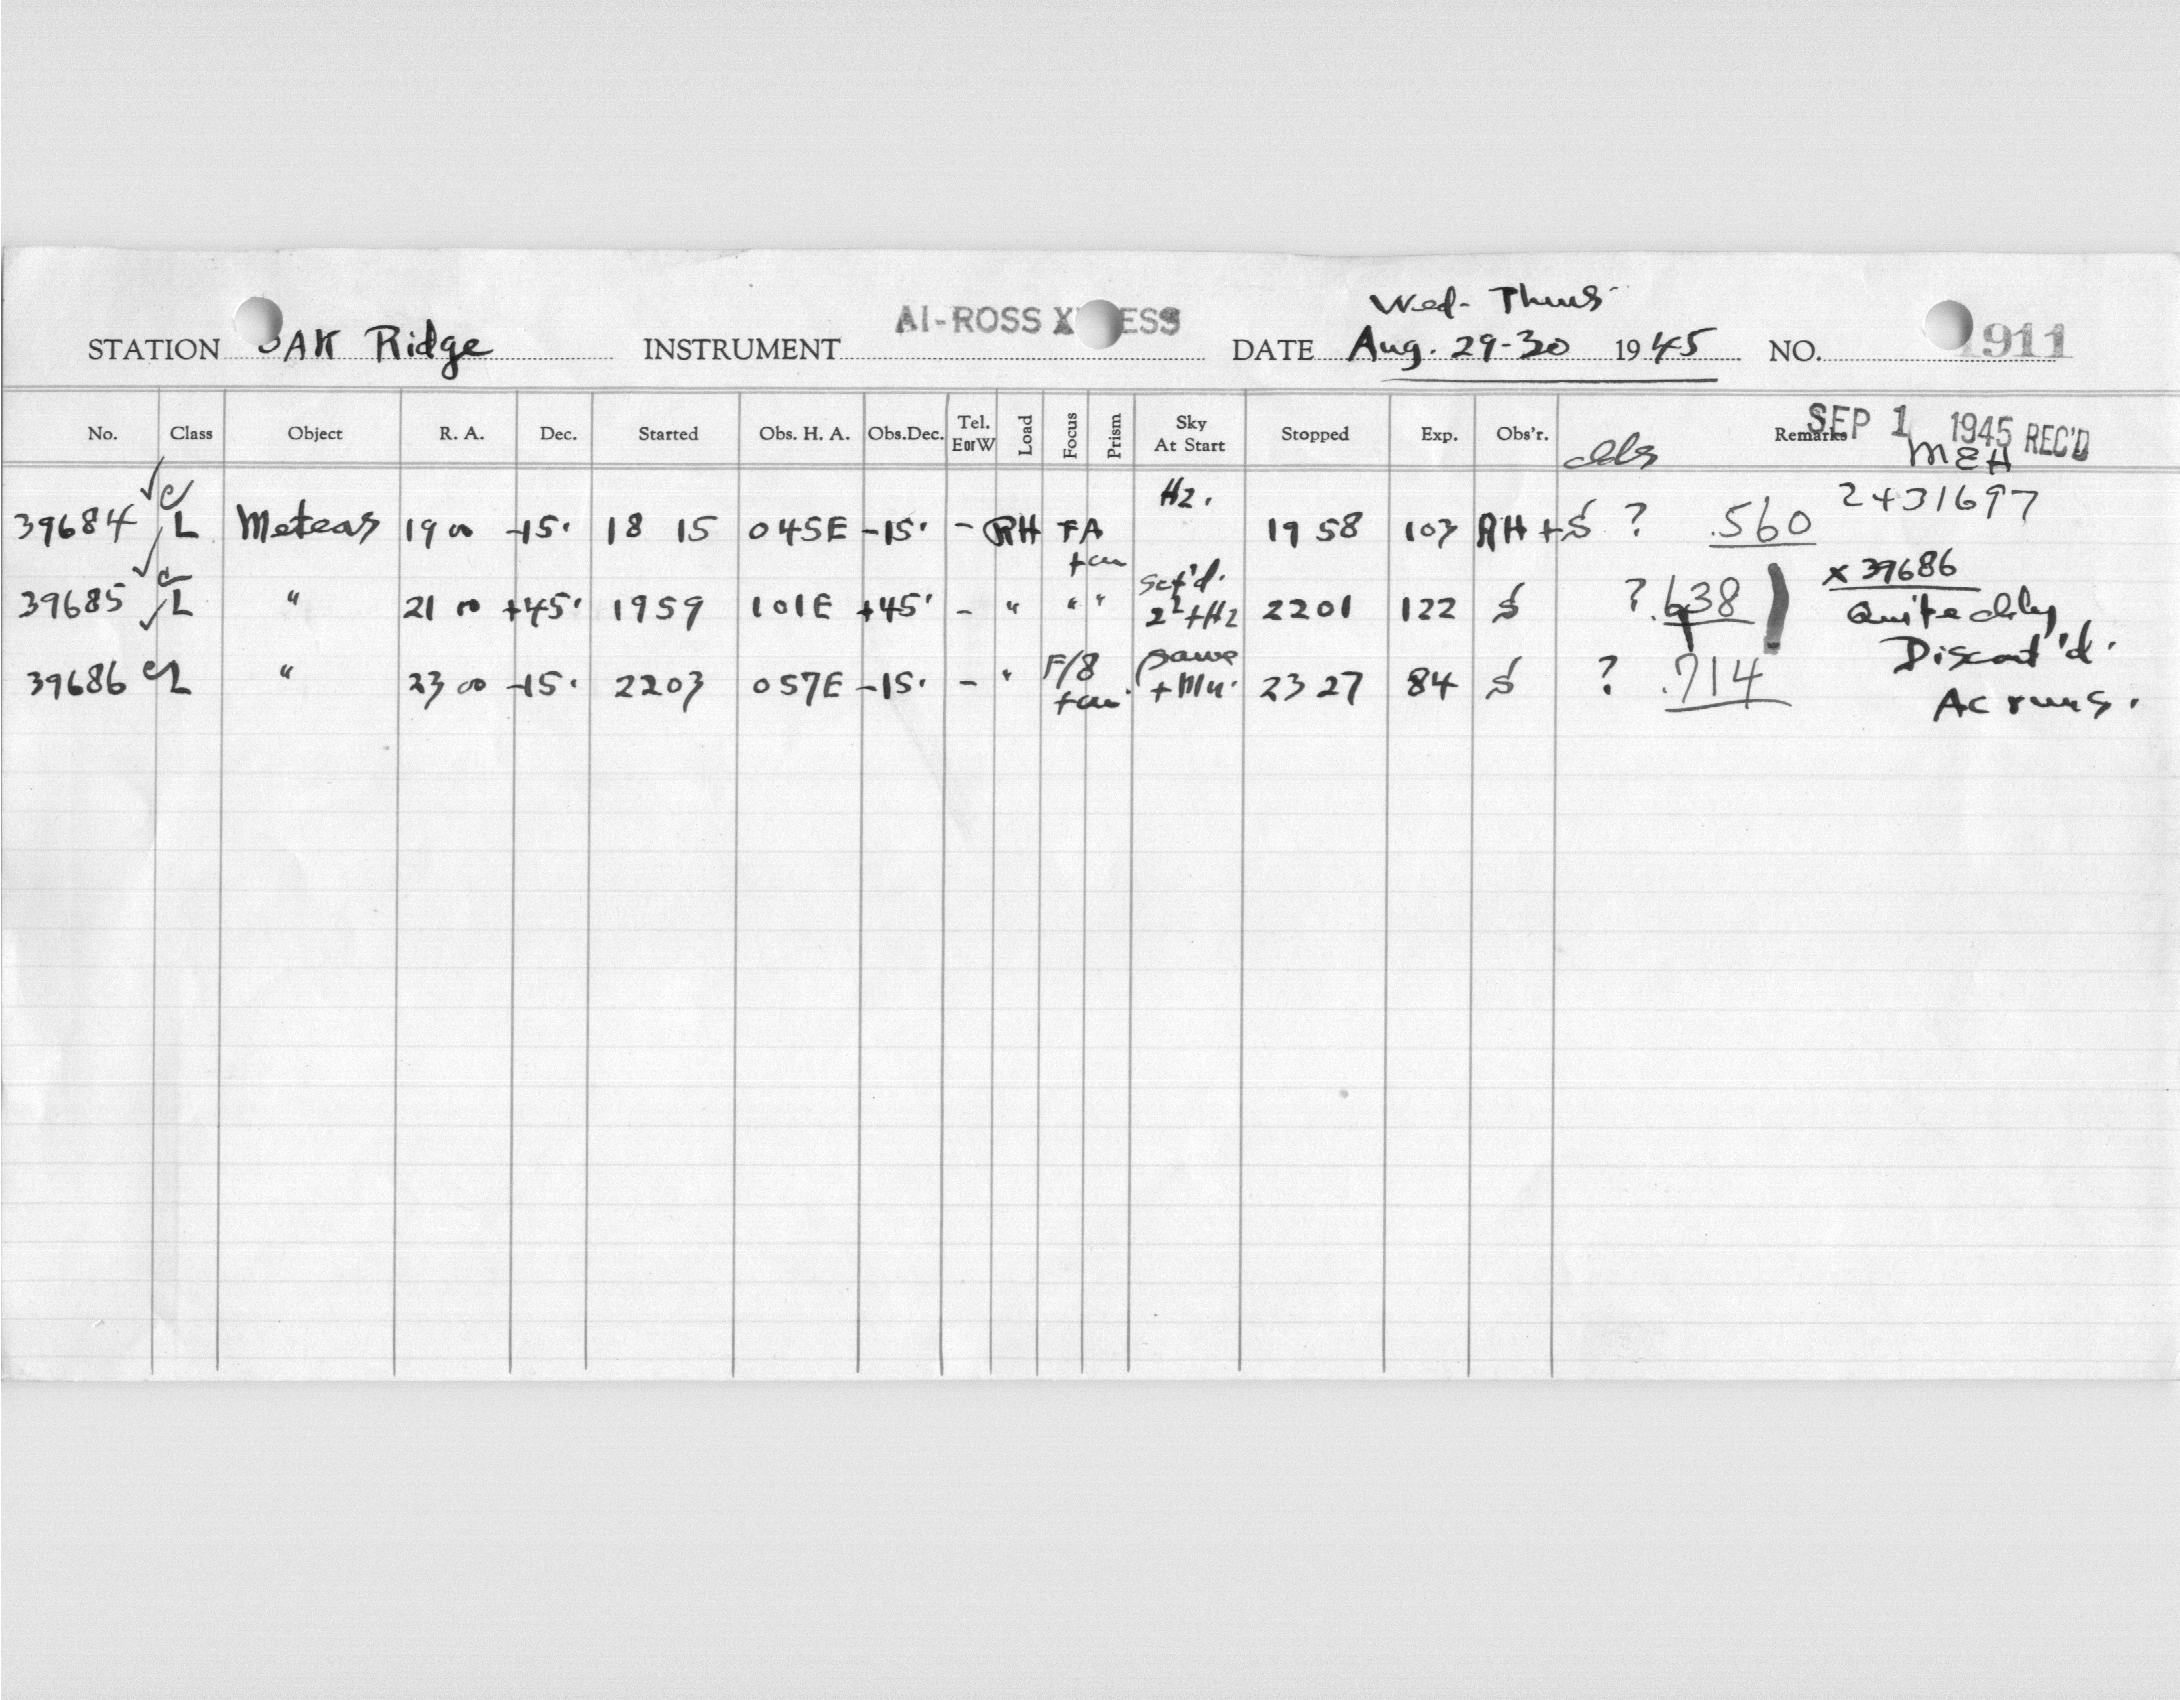 Wed- Thurs
STATION OAK Ridge INSTRUMENT AI-ROSS X ESS DATE Aug. 29-30 1945 NO. 1911
No. Class Object R. A. Dec. Started Obs. H. A. Obs.Dec. Tel. E or W Load Focus Prism Sky At Start Stopped Exp. Obs'r. Remarks
SEP 1 1945 REC'D
MEH
2431697
Hz.
39684 L Meteors 19 00 -15° 18 15 045E -15° - RH FA 19 58 103 RH + S ? .560
39685 L " 21 00 +45° 1959 101E +45° - " " " sct'd. 2²+Hz 2201 122 S ? .638
39686 L " 23 00 -15° 2203 057E -15° - " F/8 same 2327 84 S ? .714
x 39686
Quite
Discont'd.